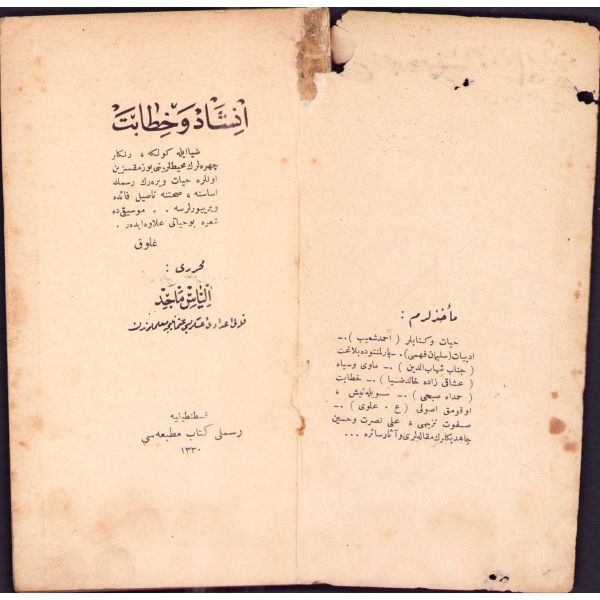 انشاد و خطابت
ضیا ایله کولکه ، رنکلر
چهره لرك محیطلرینی بوزمقسزین
اونلره حیات ویره رك رسمك
اساسنه ، صحتنه ناصیل فائده
ویریورلرسه . . موسیقی ده
شعره بوحیاتی علاوه ایدر .
غلوق
محرری :
الیاس ماجد
قسطنطینیه
رسملی کتاب مطبعه سی
١٣٣٠
مأخذلرم :
حیات و کتابلر ( احمد شعیب ) .ـ
ادبیات ( سلیمان فهمی ) .ـ پارلمنتوده بلاغت
( جناب شهاب الدین ) .ـ ماوی و سیاه
( عشاقی زاده خالد ضیا ) .ـ خطابت
( حمداﷲ صبحی ) .ـ سویله نیش ،
اوقومق اصولی ( ع . علوی ) .ـ
صفوت نزیهی ، علی نصرت و حسین
جاهد بکلرك مقاله لری و آثار سائره ...